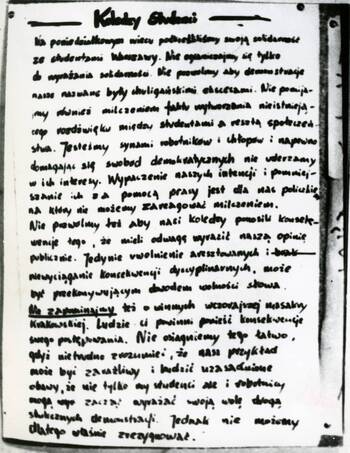 Koledzy Studenci
Na poniedziałkowym wiecu podkreśliliśmy swoją solidarność
ze studentami Warszawy. Nie ograniczajmy się tylko
do wyrażania solidarności. Nie pozwolimy aby demonstracje
nasze nazwane były chuligańskimi ekscesami. Nie pomija-
jmy również milczeniem faktu wytwarzania nieistnieją-
cego rozdźwięku między studentami a resztą społeczeń-
stwa. Jesteśmy synami robotników i chłopów i napewno
domagając się swobod demokratycznych nie uderzamy
w ich interesy. Wypaczenie naszych intencji i pomniej-
szanie ich za pomocą prasy jest dla nas policzkiem
na który nie możemy zareagować milczeniem.
Nie pozwolimy też aby nasi koledzy ponosili konsek-
wencje tego, że mieli odwagę wyrazić naszą opinię
publicznie. Jedynie uwolnienie aresztowanych i brak
niewyciąganie konsekwencji dyscyplinarnych, może
być przekonywującym dowodem wolności słowa.
Nie zapominajmy też o winnych wczorajszej masakry
Krakowskiej. Ludzie ci powinni ponieść konsekwencje
swego postępowania. Nie osiągniemy tego łatwo,
gdyż nietrudno zrozumieć, że nasz przykład
może być zaraźliwy i budzić uzasadnione
obawy, że nie tylko my studenci ale i robotnicy
mogą zacząć wyrażać swoją wolę drogą
słusznych demonstracji. Jednak nie możemy
dlatego właśnie zrezygnować.